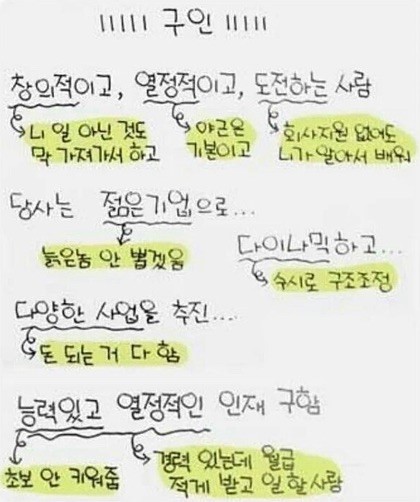 ||||| 구인 |||||
창의적이고, 열정적이고, 도전하는 사람
니 일 아닌 것도
막 가져가서 하고
야근은
기본이고
회사지원 없어도
니가 알아서 배워
당사는 젊은기업으로...
늙은놈 안 뽑겠음
다이나믹하고...
수시로 구조조정
다양한 사업을 추진...
돈 되는 거 다 함
능력있고 열정적인 인재 구함
초보 안 키워줌
경력 있는데 월급
적게 받고 일 할 사람